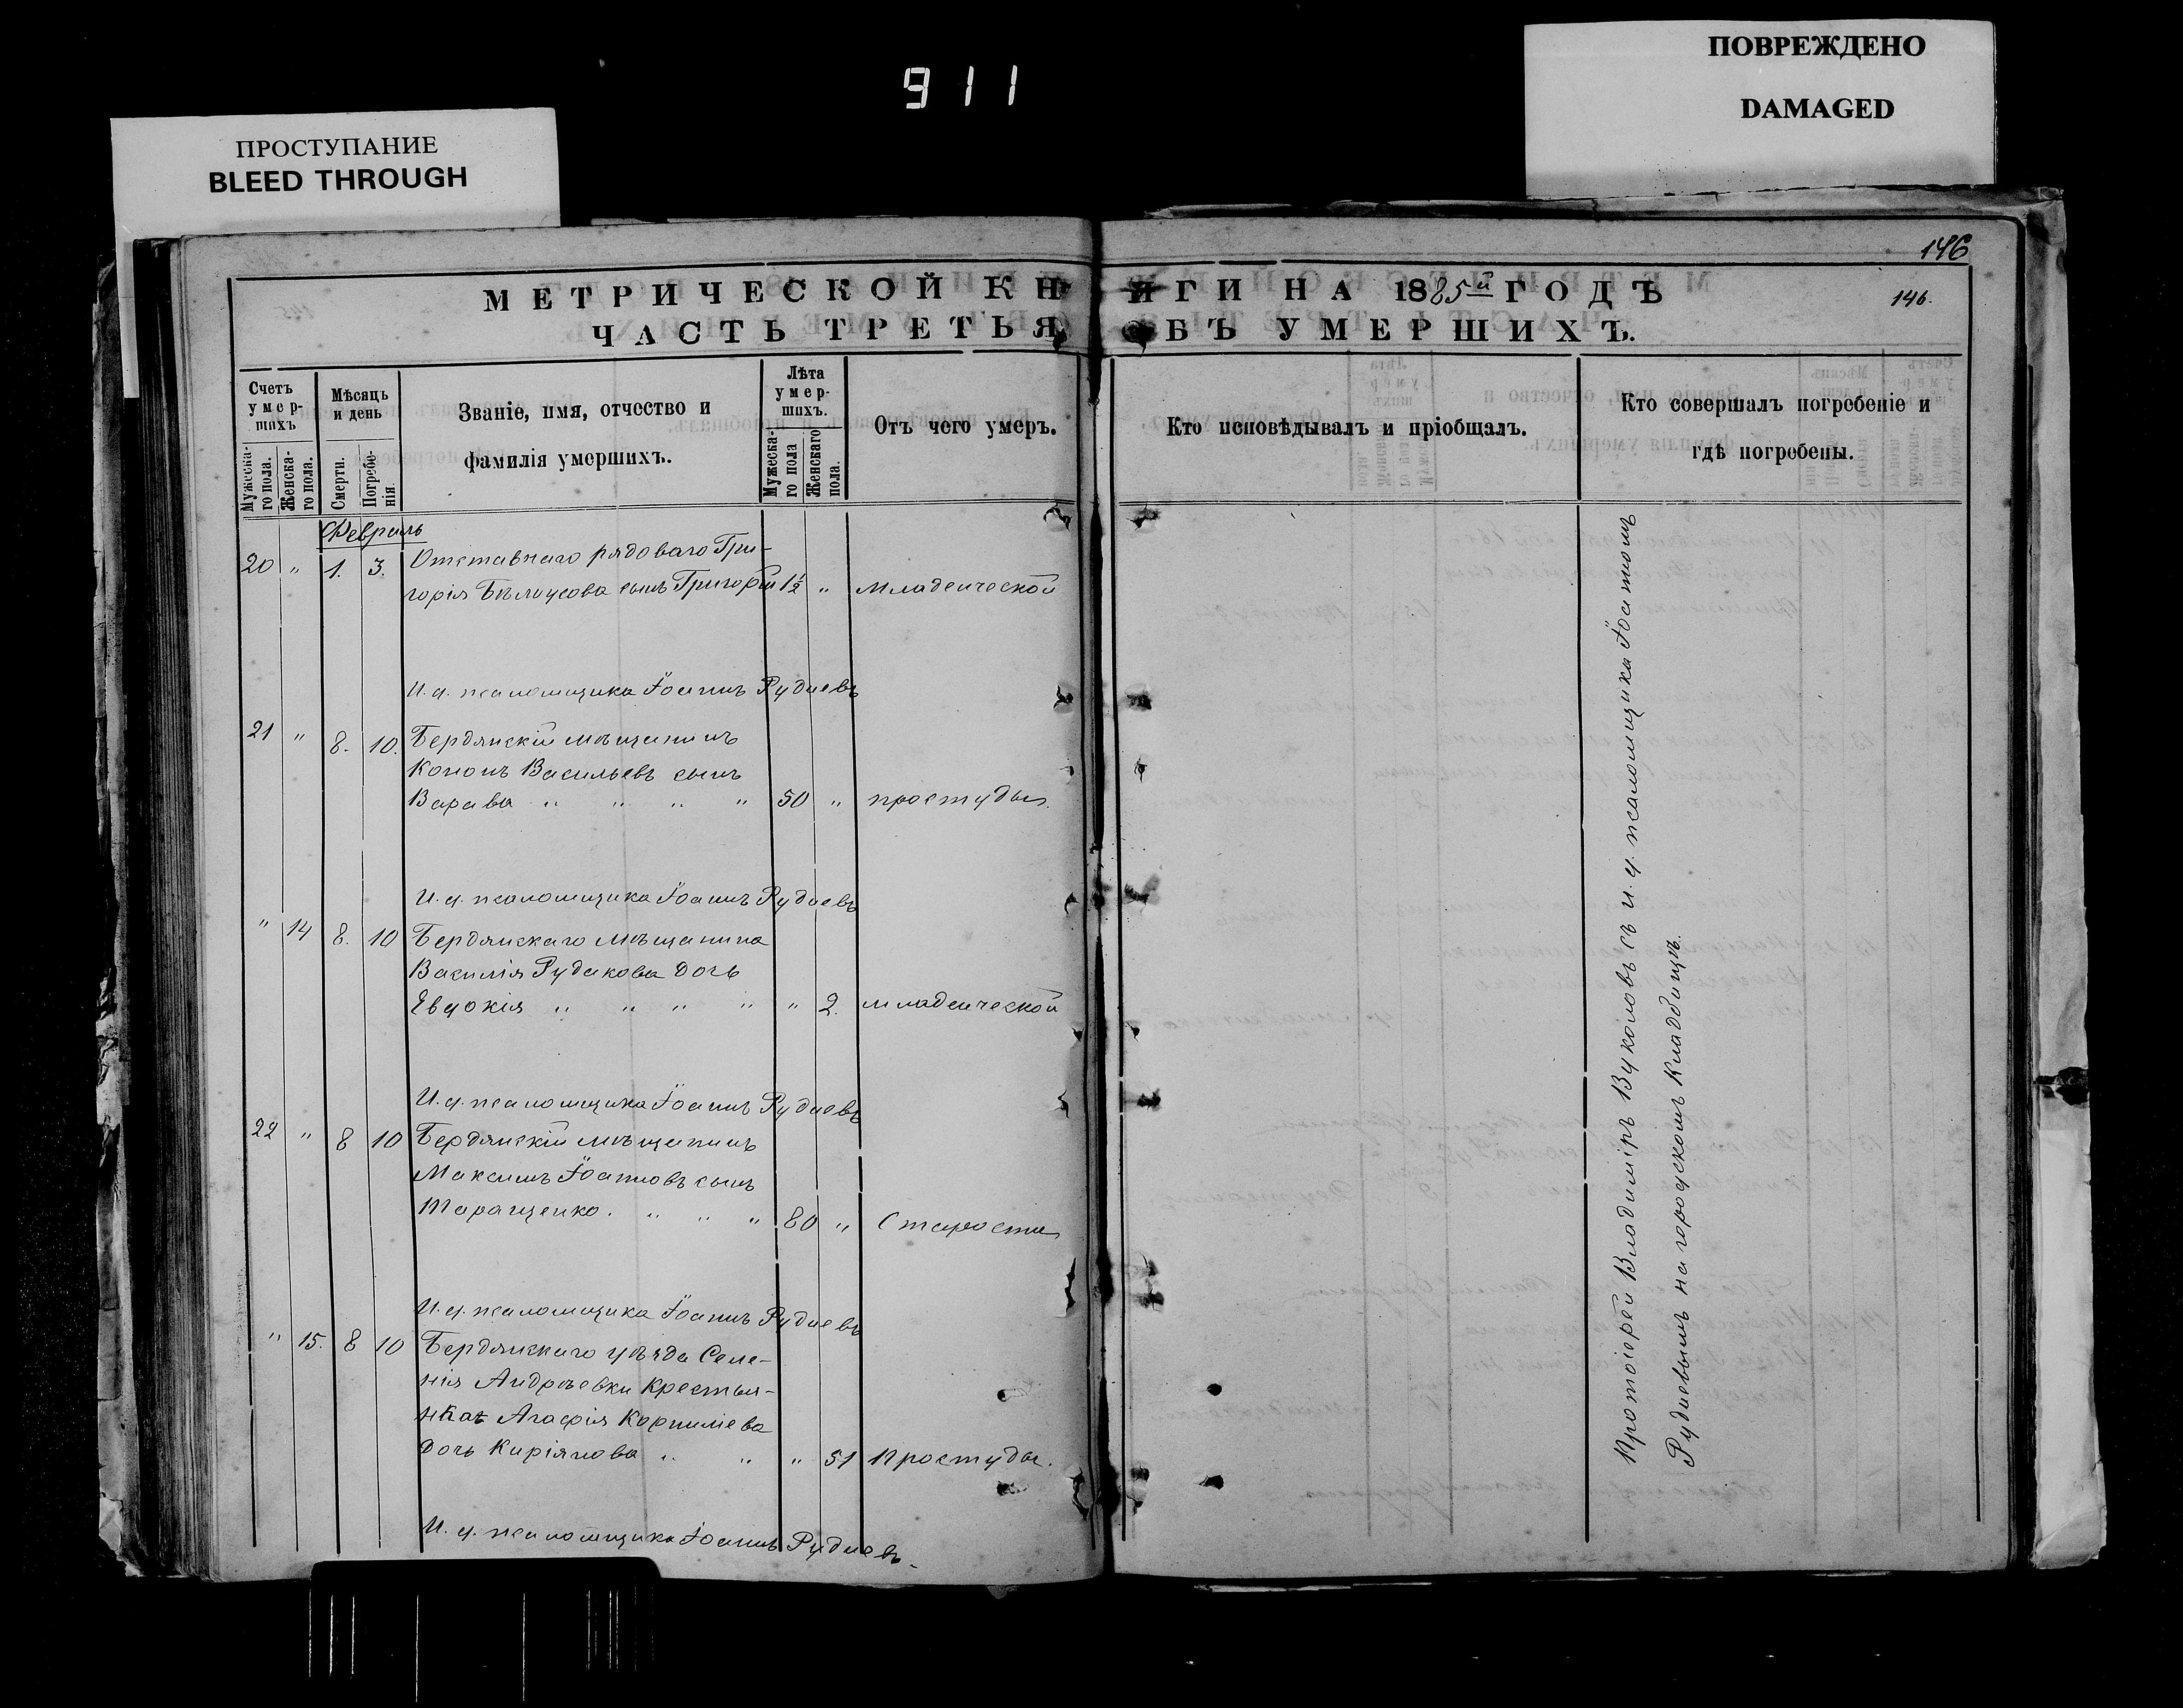 911
ПРОСТУПАНИЕ
BLEED THROUGH
ПОВРЕЖДЕНО
DAMAGED
146
МЕТРИЧЕСКОЙ КНИГИ НА 1885й ГОДЪ
146.
ЧАСТЬ ТРЕТЬЯ ОБЪ УМЕРШИХЪ.
Счетъ умер-шихъ
Мужеска-го пола.
Женска-го пола.
Мѣсяцъ и день
Смерти.
Погребе-нія.
Званіе, имя, отчество и
фамилія умершихъ.
Лѣта умер-шихъ.
Мужеска-го пола
Женскаго пола.
Отъ чего умеръ.
Кто исповѣдывалъ и пріобщалъ.
Кто совершалъ погребеніе и
гдѣ погребены.
Февраль
20 " 1. 3. Отставнаго рядоваго Гри-
горія Бѣлоусова сынъ Григорій 1½ " Младенческой
И. д. псаломщика Іоаннъ Рудневъ
21 " 8. 10. Бердянскій мѣщанинъ
Кононъ Васильевъ сынъ
Варава " " " " 50 " простуды.
И. д. псаломщика Іоаннъ Рудневъ
" 14 8. 10 Бердянскаго мѣщанина
Василія Рудакова дочь
Евдокія " " " " " 2. младенческой
И. д. псаломщика Іоаннъ Рудневъ
22 " 8 10 Бердянскій мѣщанинъ
Максимъ Іоанновъ сынъ
Таращенко. " " " 80 " Старости
И. д. псаломщика Іоаннъ Рудневъ
" 15. 8 10 Бердянскаго уѣзда Селе-
нія Андреевки Крестья-
нка Агафія Корниліева
дочь Киріянова " " " 51 Простуды.
И. д. псаломщика Іоаннъ Рудневъ.
Протоіерей Владиміръ Вуколовъ съ и. д. псаломщика Іоанномъ
Рудневымъ на городскомъ кладбищѣ.